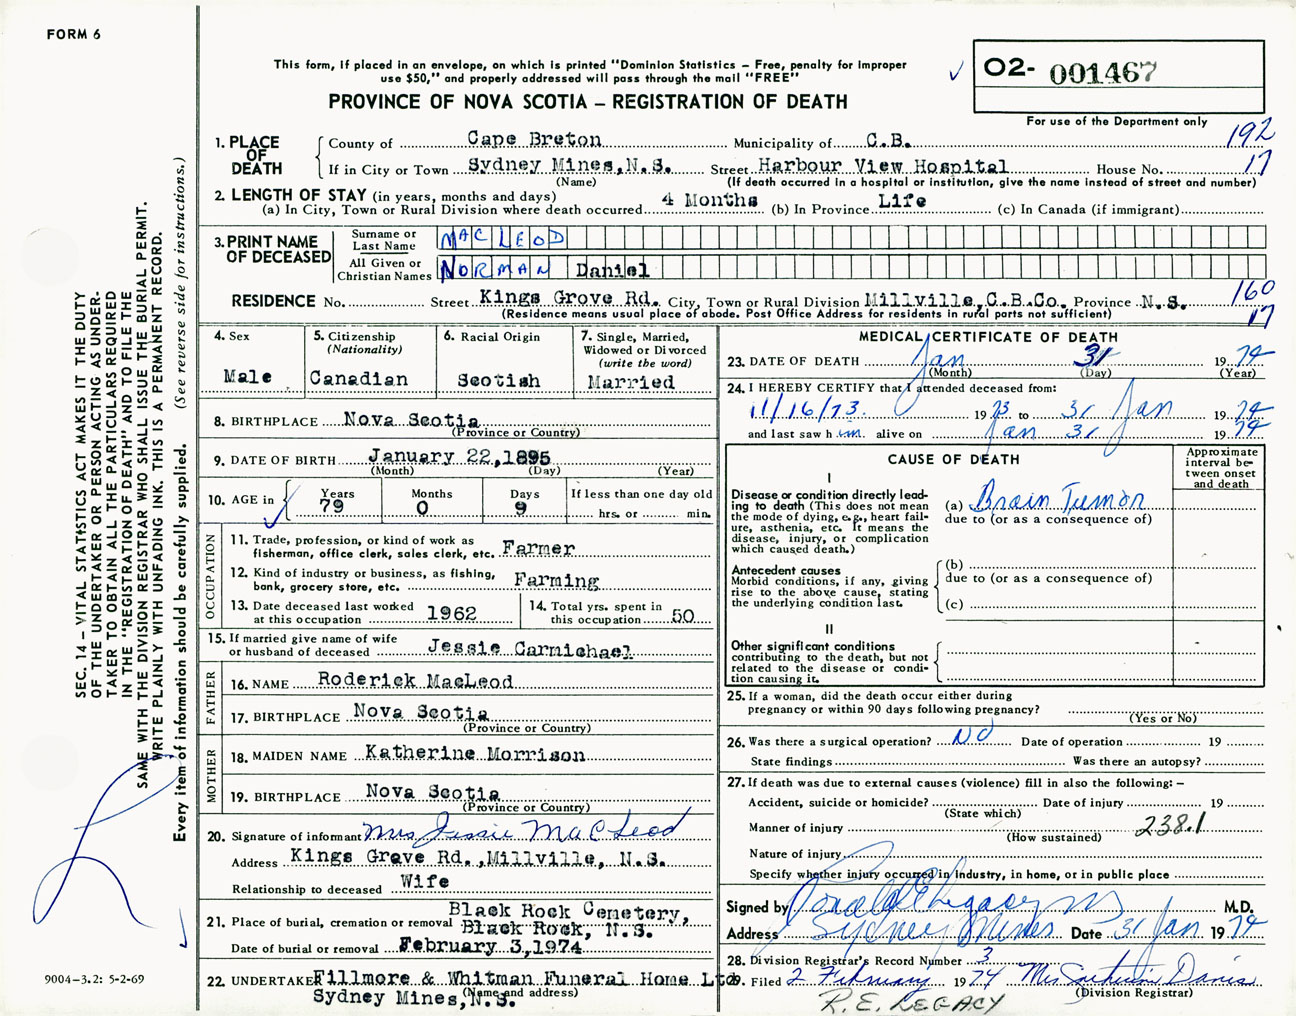 FORM 6
This form, if placed in an envelope, on which is printed "Dominion Statistics – Free, penalty for improper
use $50," and properly addressed will pass through the mail "FREE"
PROVINCE OF NOVA SCOTIA – REGISTRATION OF DEATH
O2- 001467
For use of the Department only
192
17
1. PLACE OF DEATH
County of Cape Breton Municipality of C.B.
If in City or Town Sydney Mines, N.S. Street Harbour View Hospital House No.
(Name) (If death occurred in a hospital or institution, give the name instead of street and number)
2. LENGTH OF STAY (in years, months and days)
(a) In City, Town or Rural Division where death occurred 4 Months (b) In Province Life (c) In Canada (if immigrant)
3. PRINT NAME OF DECEASED
Surname or Last Name MACLEOD
All Given or Christian Names NORMAN Daniel
RESIDENCE No. Street Kings Grove Rd. City, Town or Rural Division Millville, C.B.Co. Province N.S.
(Residence means usual place of abode. Post Office Address for residents in rural parts not sufficient)
160
17
4. Sex Male
5. Citizenship (Nationality) Canadian
6. Racial Origin Scotish
7. Single, Married, Widowed or Divorced (write the word) Married
8. BIRTHPLACE Nova Scotia
(Province or Country)
9. DATE OF BIRTH January 22, 1895
(Month) (Day) (Year)
10. AGE in Years 79 Months 0 Days 9 If less than one day old
hrs. or min.
OCCUPATION
11. Trade, profession, or kind of work as
fisherman, office clerk, sales clerk, etc. Farmer
12. Kind of industry or business, as fishing,
bank, grocery store, etc. Farming
13. Date deceased last worked
at this occupation 1962
14. Total yrs. spent in
this occupation 50
15. If married give name of wife
or husband of deceased Jessie Carmichael
FATHER
16. NAME Roderick MacLeod
17. BIRTHPLACE Nova Scotia
(Province or Country)
MOTHER
18. MAIDEN NAME Katherine Morrison
19. BIRTHPLACE Nova Scotia
(Province or Country)
20. Signature of informant Mrs Jessie MacLeod
Address Kings Grave Rd., Millville, N.S.
Relationship to deceased Wife
21. Place of burial, cremation or removal Black Rock Cemetery,
Black Rock, N.S.
Date of burial or removal February 3, 1974
22. UNDERTAKER Fillmore & Whitman Funeral Home Ltd.
Sydney Mines, N.S.
(Name and address)
MEDICAL CERTIFICATE OF DEATH
23. DATE OF DEATH Jan 31 19 74
(Month) (Day) (Year)
24. I HEREBY CERTIFY that I attended deceased from:
11/16/73. 19 73 to 31 Jan 19 74
and last saw h im alive on Jan 31 19 74
CAUSE OF DEATH
Approximate interval between onset and death
I
Disease or condition directly lead-
ing to death (This does not mean
the mode of dying, e.g., heart fail-
ure, asthenia, etc. It means the
disease, injury, or complication
which caused death.)
(a) Brain Tumor
due to (or as a consequence of)
Antecedent causes
Morbid conditions, if any, giving
rise to the above cause, stating
the underlying condition last.
(b)
due to (or as a consequence of)
(c)
II
Other significant conditions
contributing to the death, but not
related to the disease or condi-
tion causing it.
25. If a woman, did the death occur either during
pregnancy or within 90 days following pregnancy?
(Yes or No)
26. Was there a surgical operation? NO Date of operation 19
State findings Was there an autopsy?
27. If death was due to external causes (violence) fill in also the following: –
Accident, suicide or homicide? Date of injury 19
(State which)
Manner of injury 238.1
(How sustained)
Nature of injury
Specify whether injury occurred in industry, in home, or in public place
Signed by M.D.
Address Sydney Mines Date 31 Jan 19 74
28. Division Registrar's Record Number 3
Filed 2 February 19 74 Mrs Davis
(Division Registrar)
R. E. LEGACY
SEC. 14 – VITAL STATISTICS ACT MAKES IT THE DUTY
OF THE UNDERTAKER OR PERSON ACTING AS UNDER-
TAKER TO OBTAIN ALL THE PARTICULARS REQUIRED
IN THE "REGISTRATION OF DEATH" AND TO FILE THE
SAME WITH THE DIVISION REGISTRAR WHO SHALL ISSUE THE BURIAL PERMIT.
WRITE PLAINLY WITH UNFADING INK. THIS IS A PERMANENT RECORD.
Every item of Information should be carefully supplied. (See reverse side for instructions.)
9004–3.2: 5-2-69